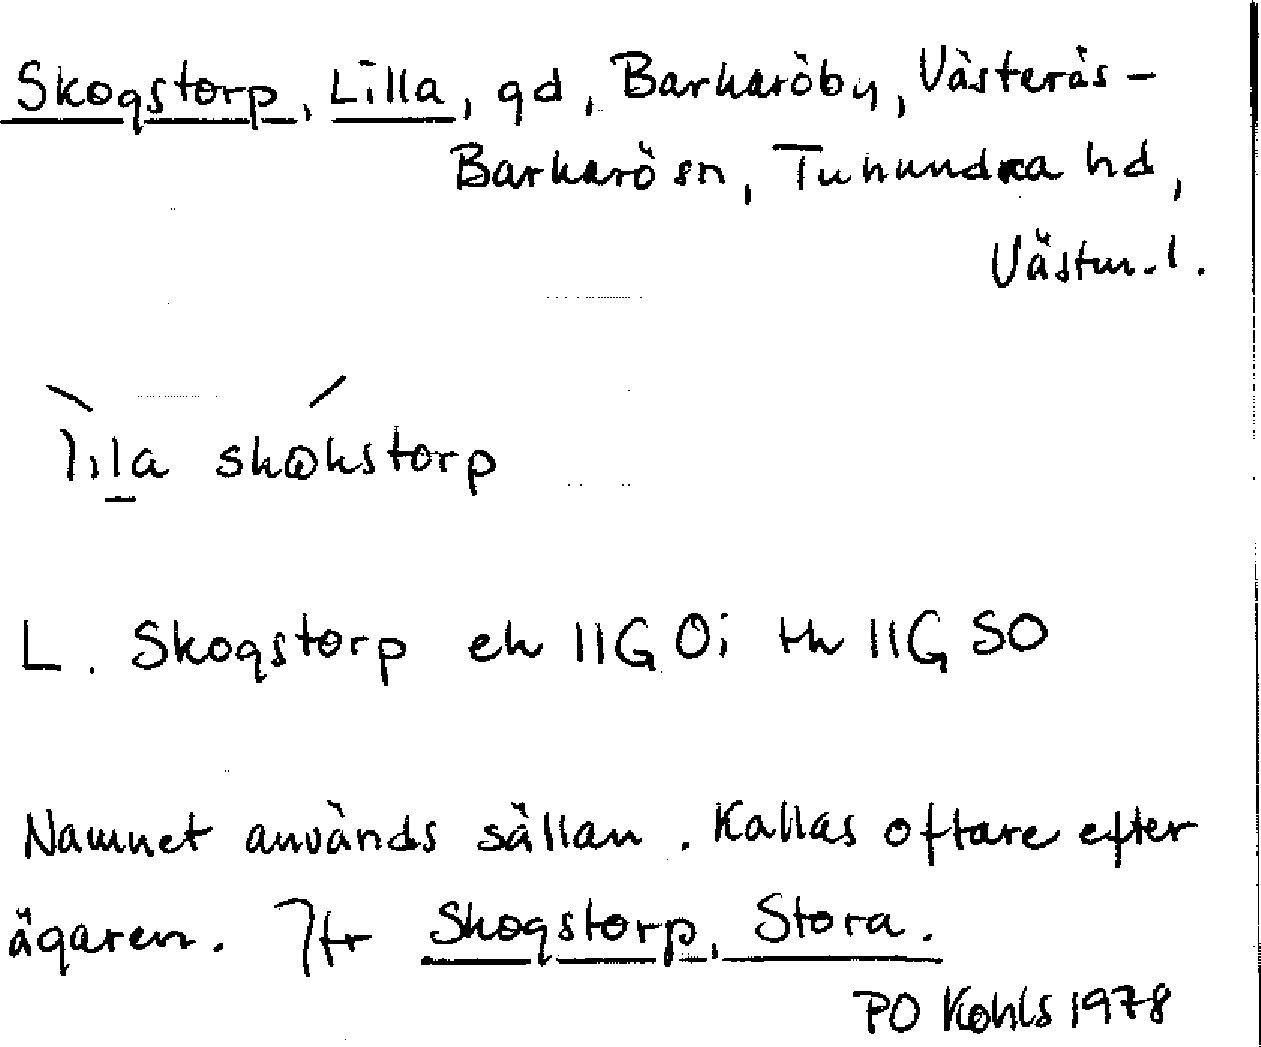 Skogstorp, Lilla, gd, Barkaröby, Västerås-
Barkarö sn, Tuhundra hd,
Västm. l.
lila skokstorp
L. Skogstorp ek 11G 0i tk 11G SO
Namnet används sällan. Kallas oftare efter
ägaren. Jfr Skogstorp, Stora.
PO Kohls 1978